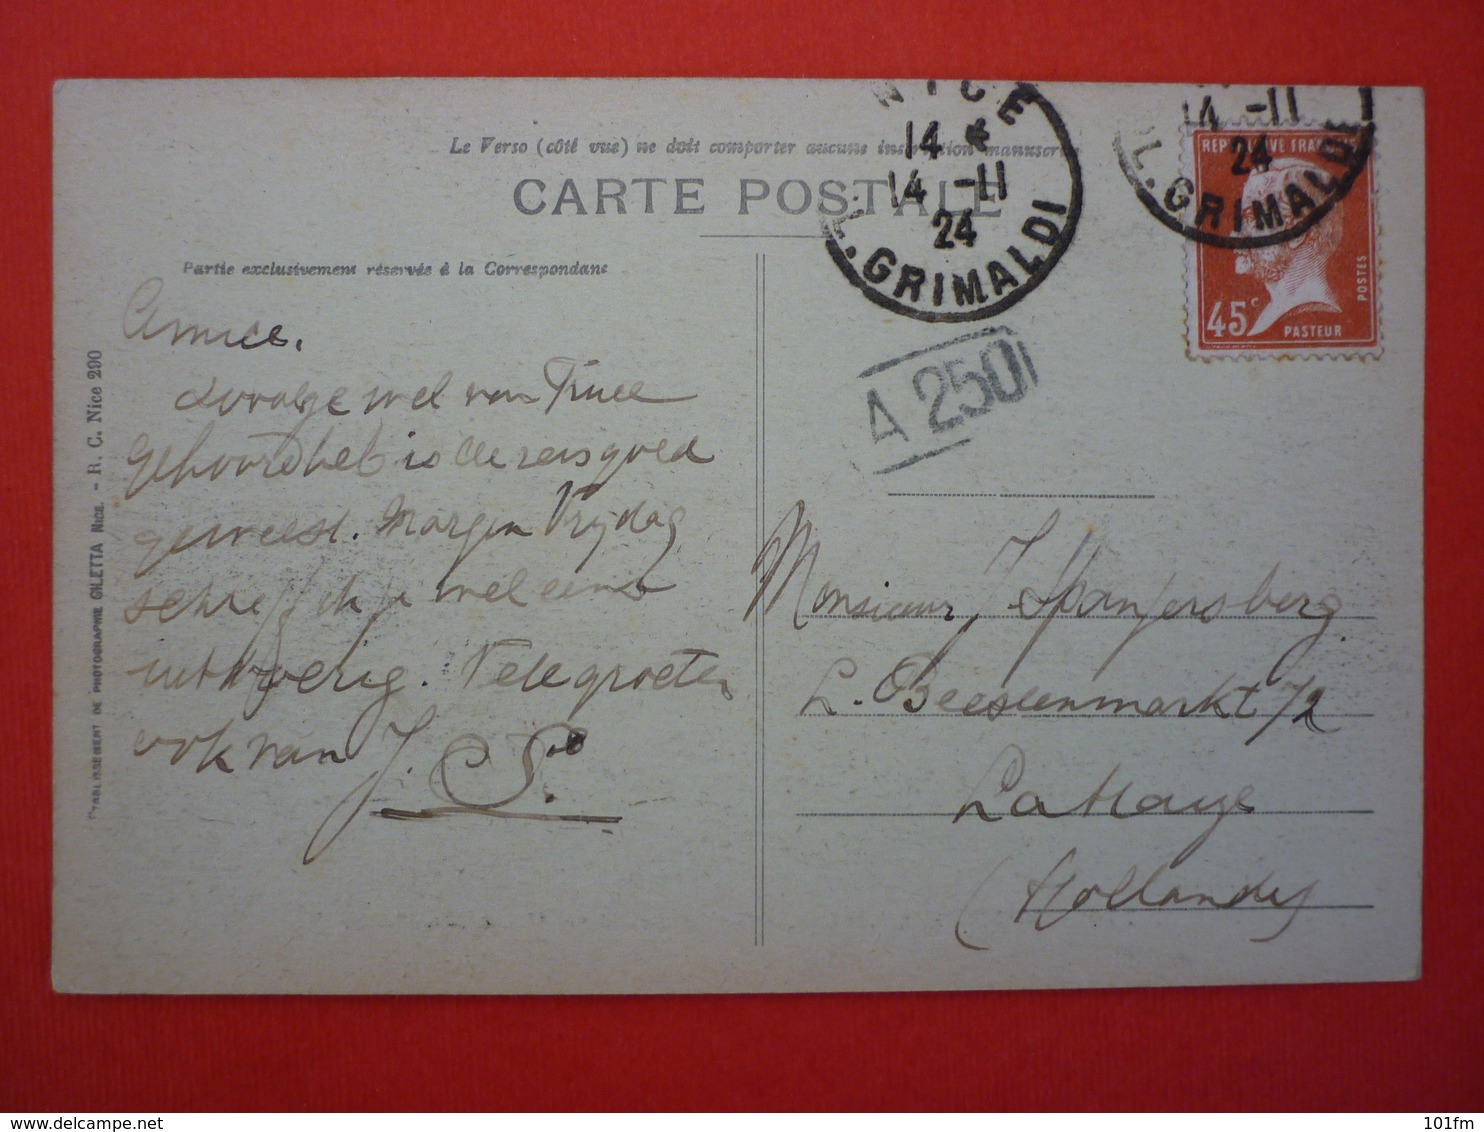 Le Verso (côté vue) ne doit comporter aucune inscription manuscrite
CARTE POSTALE
Partie exclusivement réservée à la Correspondance
NICE
14
14 -11
24
PL. GRIMALDI
14 -11
24
PL. GRIMALDI
RÉPUBLIQUE FRANÇAISE
45c
PASTEUR
POSTES
A 250
Amice.
zooals ge wel van Truce
gehoord hebt is de reis goed
geweest. Morgen Vrijdag
schrijf ik je wel eens
uitvoerig. Vele groeten
ook van J.
S.
Monsieur J Spanjersberg
L. Beestenmarkt 72
La Haye
(Hollande)
ETABLISSEMENT DE PHOTOGRAPHIE GILETTA NICE. - R. C. Nice 290
101fm